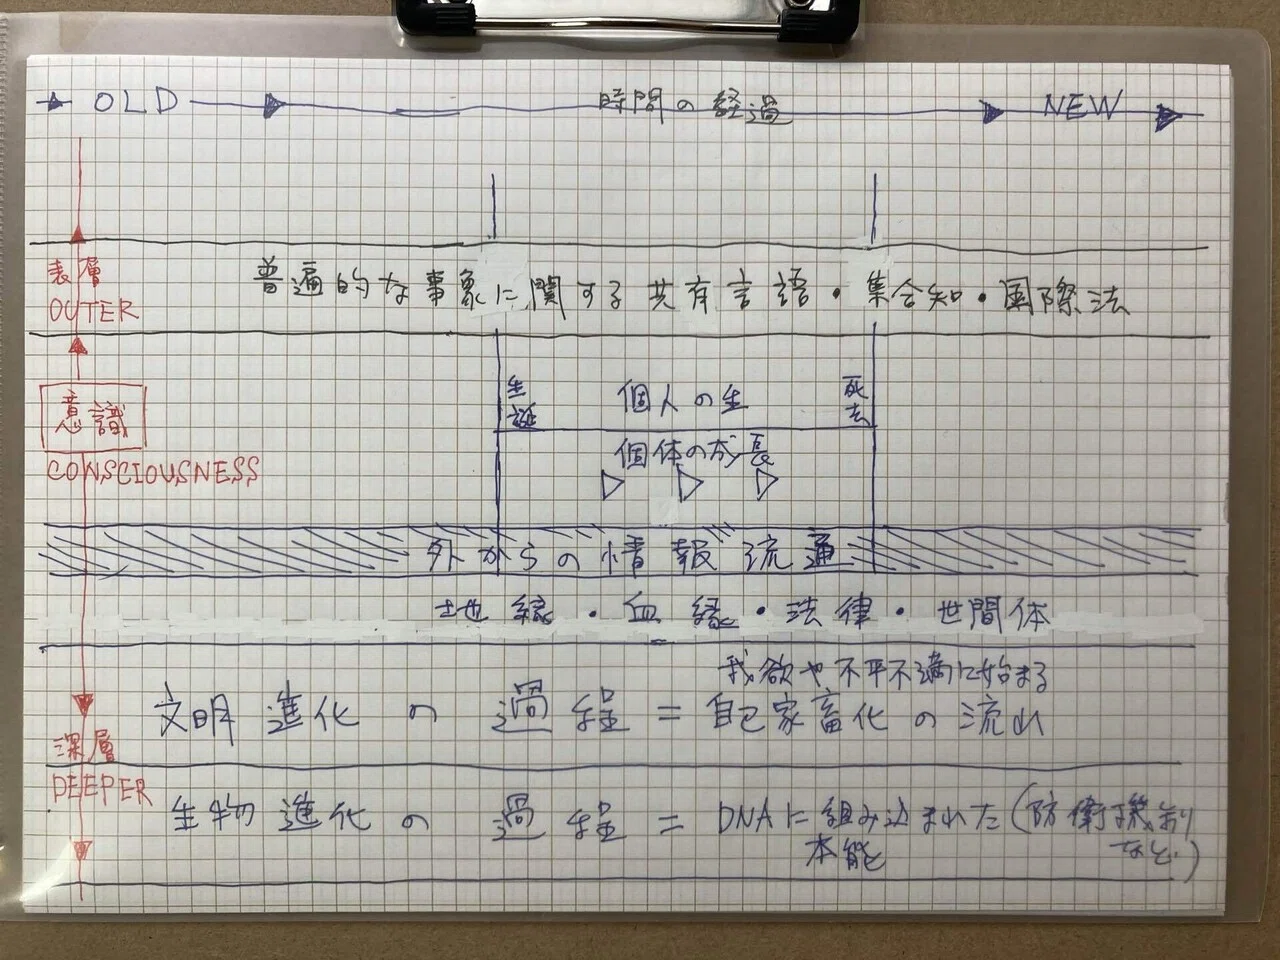 OLD 時間の経過 NEW
表層
OUTER
普遍的な事象に関する共有言語・集合知・国際法
意識
CONSCIOUSNESS
生誕
個人の生
死去
個体の成長
外からの情報流通
地縁・血縁・法律・世間体
我欲や不平不満に始まる
文明進化の過程=自己家畜化の流れ
深層
DEEPER
生物進化の過程=DNAに組み込まれた(防衛機制など)
本能